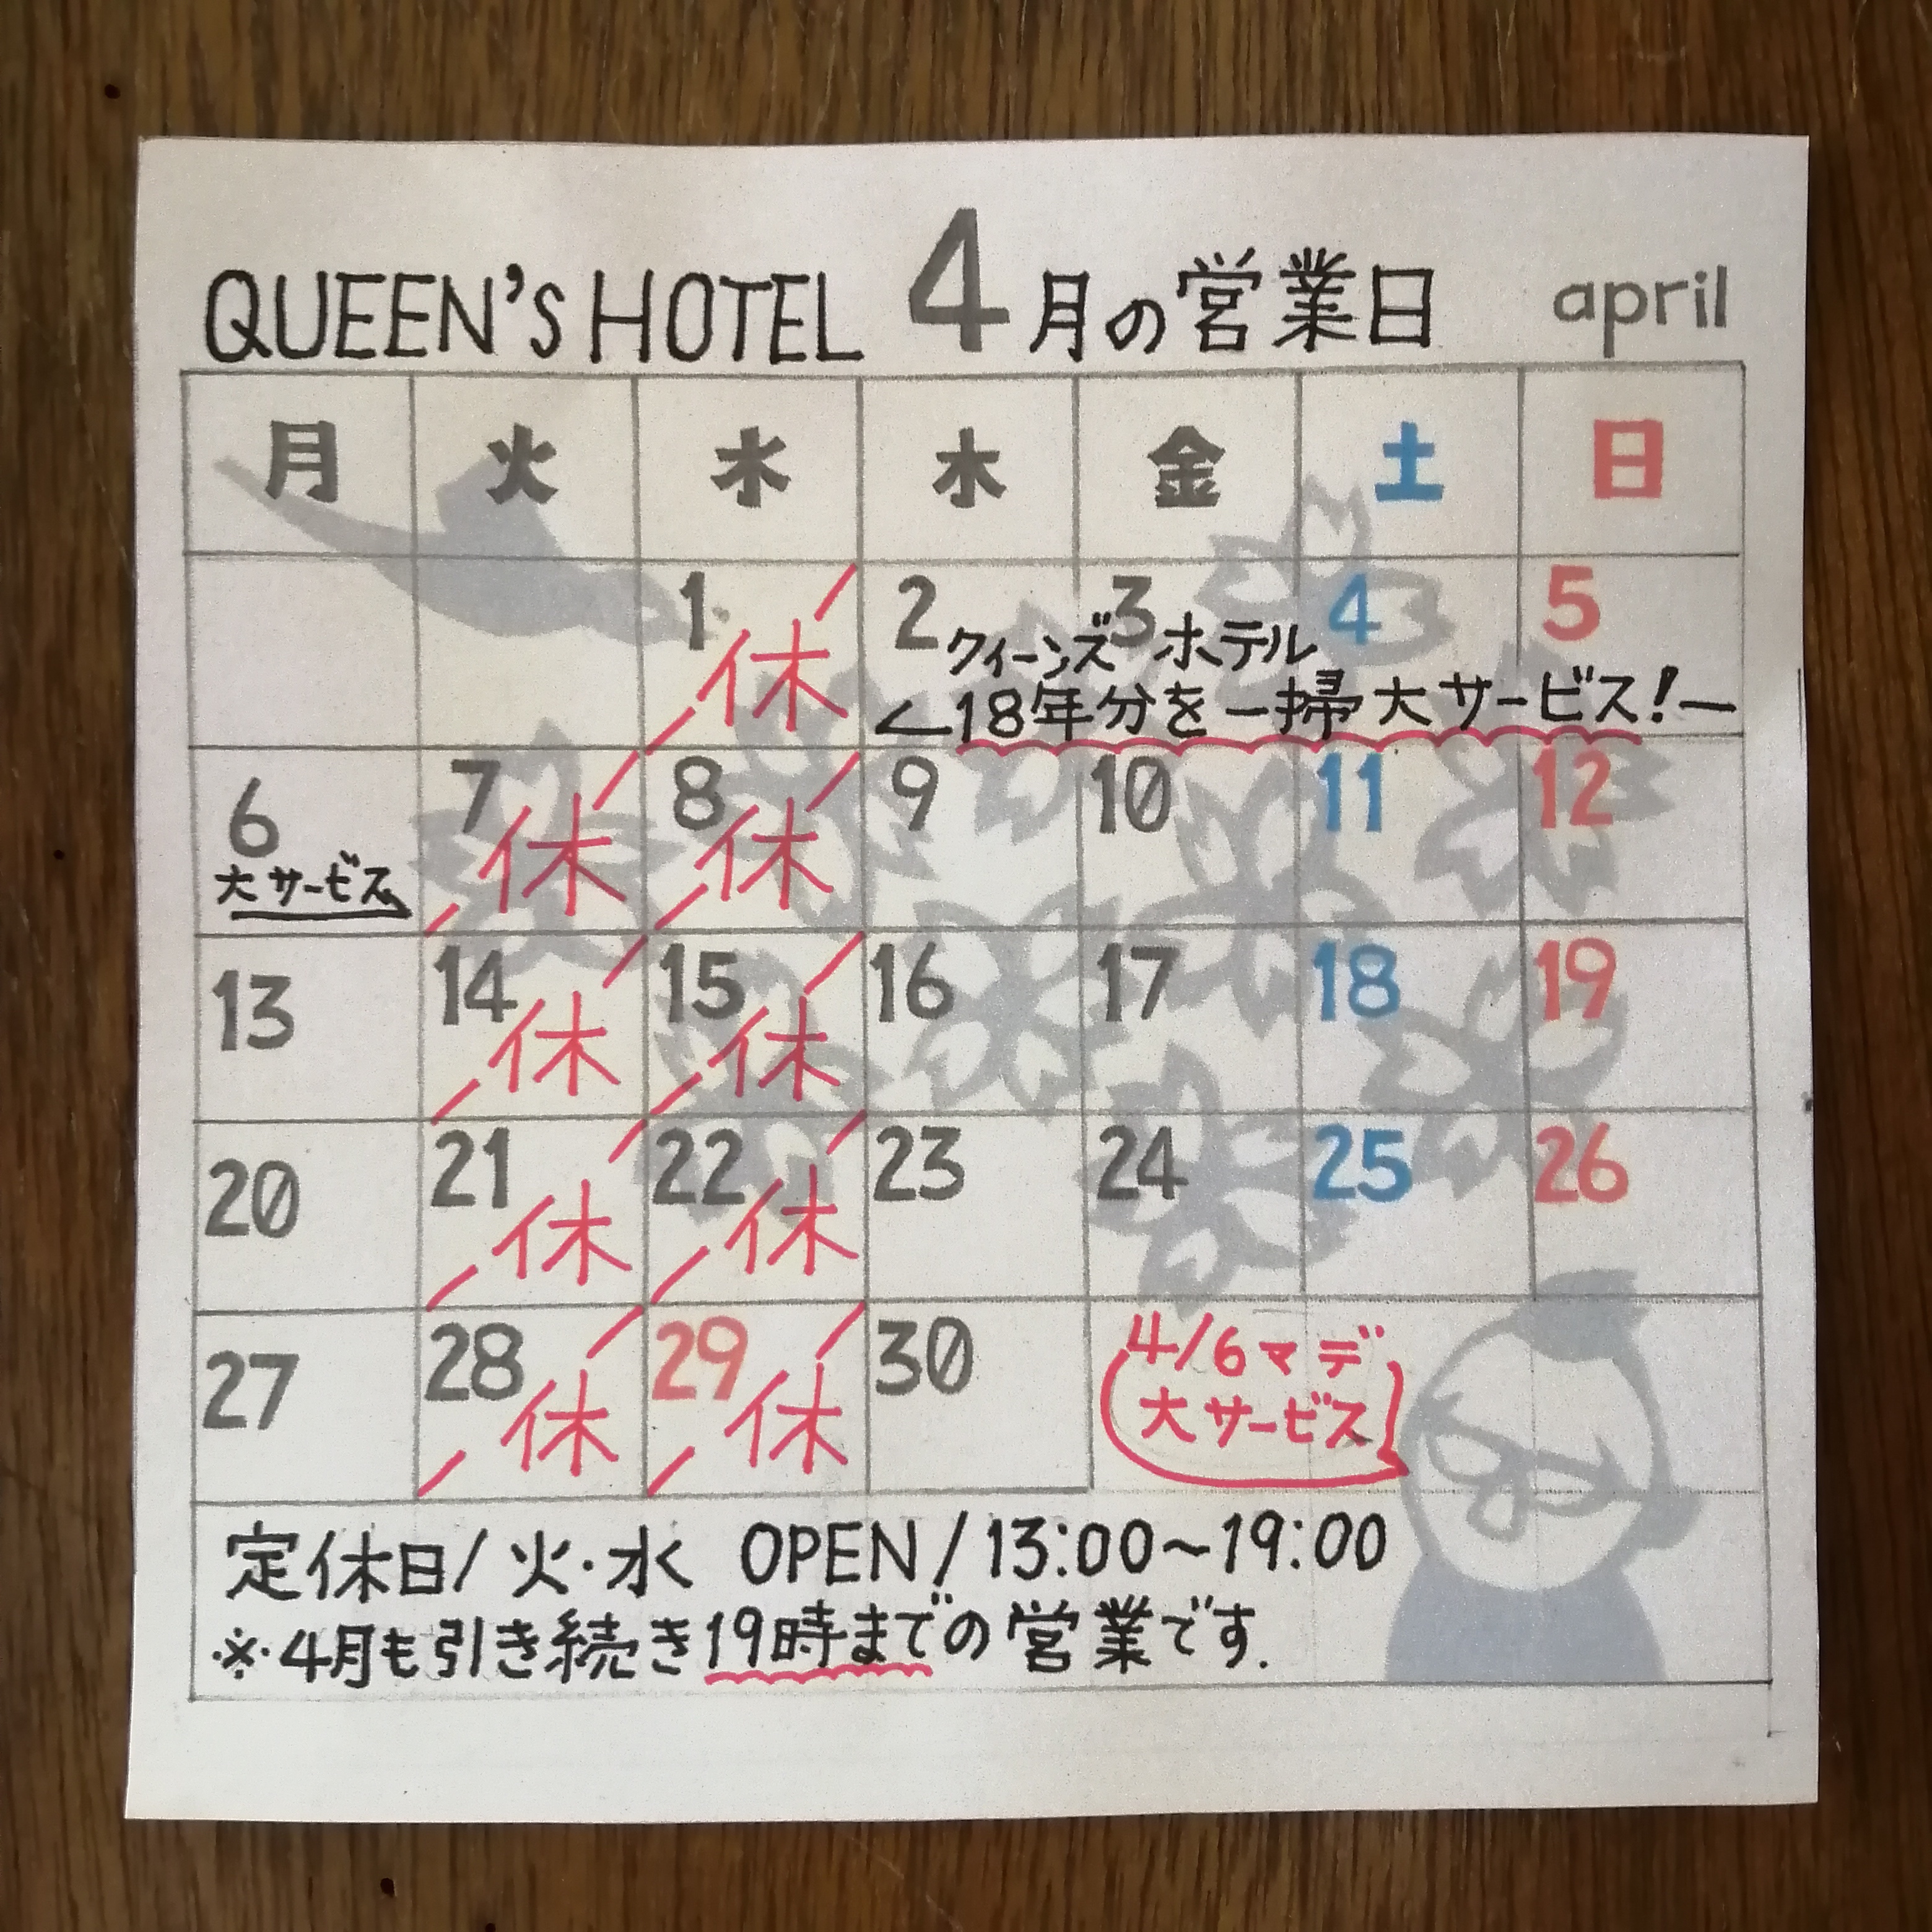 QUEEN'S HOTEL 4月の営業日 april
月 火 水 木 金 土 日
1 2 3 4 5
休 クィーンズ ホテル
18年分を一掃大サービス!
6 7 8 9 10 11 12
大サービス 休 休
13 14 15 16 17 18 19
休 休
20 21 22 23 24 25 26
休 休
27 28 29 30
休 休
4/6マデ
大サービス
定休日/火・水 OPEN/13:00~19:00
※4月も引き続き19時までの営業です.